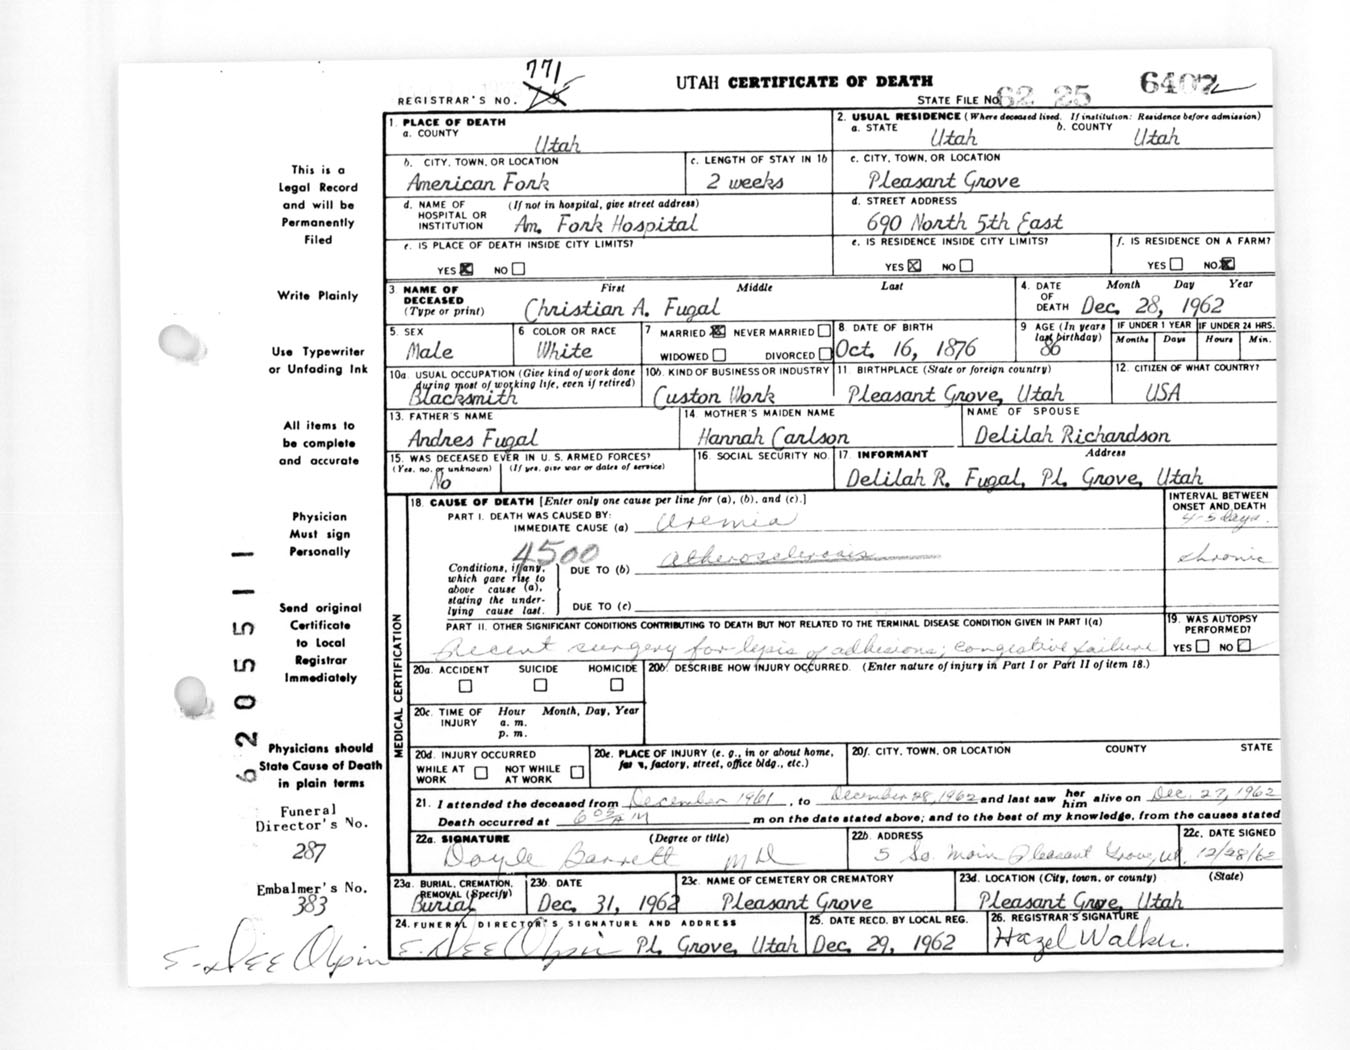 771
REGISTRAR'S NO.
UTAH CERTIFICATE OF DEATH
STATE FILE NO. 62 25 6402
1. PLACE OF DEATH
a. COUNTY
Utah
2. USUAL RESIDENCE (Where deceased lived. If institution: Residence before admission)
a. STATE b. COUNTY
Utah Utah
b. CITY, TOWN, OR LOCATION
American Fork
c. LENGTH OF STAY IN 1b
2 weeks
c. CITY, TOWN, OR LOCATION
Pleasant Grove
d. NAME OF HOSPITAL OR INSTITUTION (If not in hospital, give street address)
Am. Fork Hospital
d. STREET ADDRESS
690 North 5th East
e. IS PLACE OF DEATH INSIDE CITY LIMITS?
YES ☒ NO ☐
e. IS RESIDENCE INSIDE CITY LIMITS?
YES ☒ NO ☐
f. IS RESIDENCE ON A FARM?
YES ☐ NO ☒
3 NAME OF DECEASED (Type or print)
First Middle Last
Christian A. Fugal
4. DATE OF DEATH
Month Day Year
Dec. 28, 1962
5. SEX
Male
6 COLOR OR RACE
White
7 MARRIED ☒ NEVER MARRIED ☐
WIDOWED ☐ DIVORCED ☐
8. DATE OF BIRTH
Oct. 16, 1876
9 AGE (In years last birthday)
86
IF UNDER 1 YEAR IF UNDER 24 HRS.
Months Days Hours Min.
10a. USUAL OCCUPATION (Give kind of work done during most of working life, even if retired)
Blacksmith
10b. KIND OF BUSINESS OR INDUSTRY
Custon Work
11. BIRTHPLACE (State or foreign country)
Pleasant Grove, Utah
12. CITIZEN OF WHAT COUNTRY?
USA
13. FATHER'S NAME
Andres Fugal
14. MOTHER'S MAIDEN NAME
Hannah Carlson
NAME OF SPOUSE
Delilah Richardson
15. WAS DECEASED EVER IN U. S. ARMED FORCES?
(Yes, no, or unknown) (If yes, give war or dates of service)
No
16. SOCIAL SECURITY NO.
17. INFORMANT Address
Delilah R. Fugal, Pl. Grove, Utah
MEDICAL CERTIFICATION
18. CAUSE OF DEATH [Enter only one cause per line for (a), (b), and (c).]
INTERVAL BETWEEN ONSET AND DEATH
PART I. DEATH WAS CAUSED BY:
IMMEDIATE CAUSE (a) Uremia 4-5 days.
4500
Conditions, if any, which gave rise to above cause (a), stating the underlying cause last.
DUE TO (b) atherosclerosis chronic
DUE TO (c)
PART II. OTHER SIGNIFICANT CONDITIONS CONTRIBUTING TO DEATH BUT NOT RELATED TO THE TERMINAL DISEASE CONDITION GIVEN IN PART I(a)
Recent surgery for lysis of adhesions; congestive failure
19. WAS AUTOPSY PERFORMED?
YES ☐ NO ☑
20a. ACCIDENT SUICIDE HOMICIDE
☐ ☐ ☐
20b. DESCRIBE HOW INJURY OCCURRED. (Enter nature of injury in Part I or Part II of item 18.)
20c. TIME OF INJURY Hour Month, Day, Year
a. m.
p. m.
20d. INJURY OCCURRED
WHILE AT WORK ☐ NOT WHILE AT WORK ☐
20e. PLACE OF INJURY (e. g., in or about home, factory, street, office bldg., etc.)
20f. CITY, TOWN, OR LOCATION COUNTY STATE
21. I attended the deceased from December 1961, to December 28, 1962 and last saw her him alive on Dec. 27, 1962
Death occurred at 6 05 AM m on the date stated above; and to the best of my knowledge, from the causes stated
22a. SIGNATURE (Degree or title)
Doyle Barrett MD
22b. ADDRESS
5 So. Main Pleasant Grove, Ut.
22c. DATE SIGNED
12/28/62
23a. BURIAL, CREMATION, REMOVAL (Specify)
Burial
23b. DATE
Dec. 31, 1962
23c. NAME OF CEMETERY OR CREMATORY
Pleasant Grove
23d. LOCATION (City, town, or county) (State)
Pleasant Grove, Utah
24. FUNERAL DIRECTOR'S SIGNATURE AND ADDRESS
E. Dee Olpin Pl. Grove, Utah
25. DATE RECD. BY LOCAL REG.
Dec. 29, 1962
26. REGISTRAR'S SIGNATURE
Hazel Walker.
This is a
Legal Record
and will be
Permanently
Filed
Write Plainly
Use Typewriter
or Unfading Ink
All items to
be complete
and accurate
Physician
Must sign
Personally
Send original
Certificate
to Local
Registrar
Immediately
Physicians should
State Cause of Death
in plain terms
Funeral
Director's No.
287
Embalmer's No.
383
E. Dee Olpin
62055 1 1